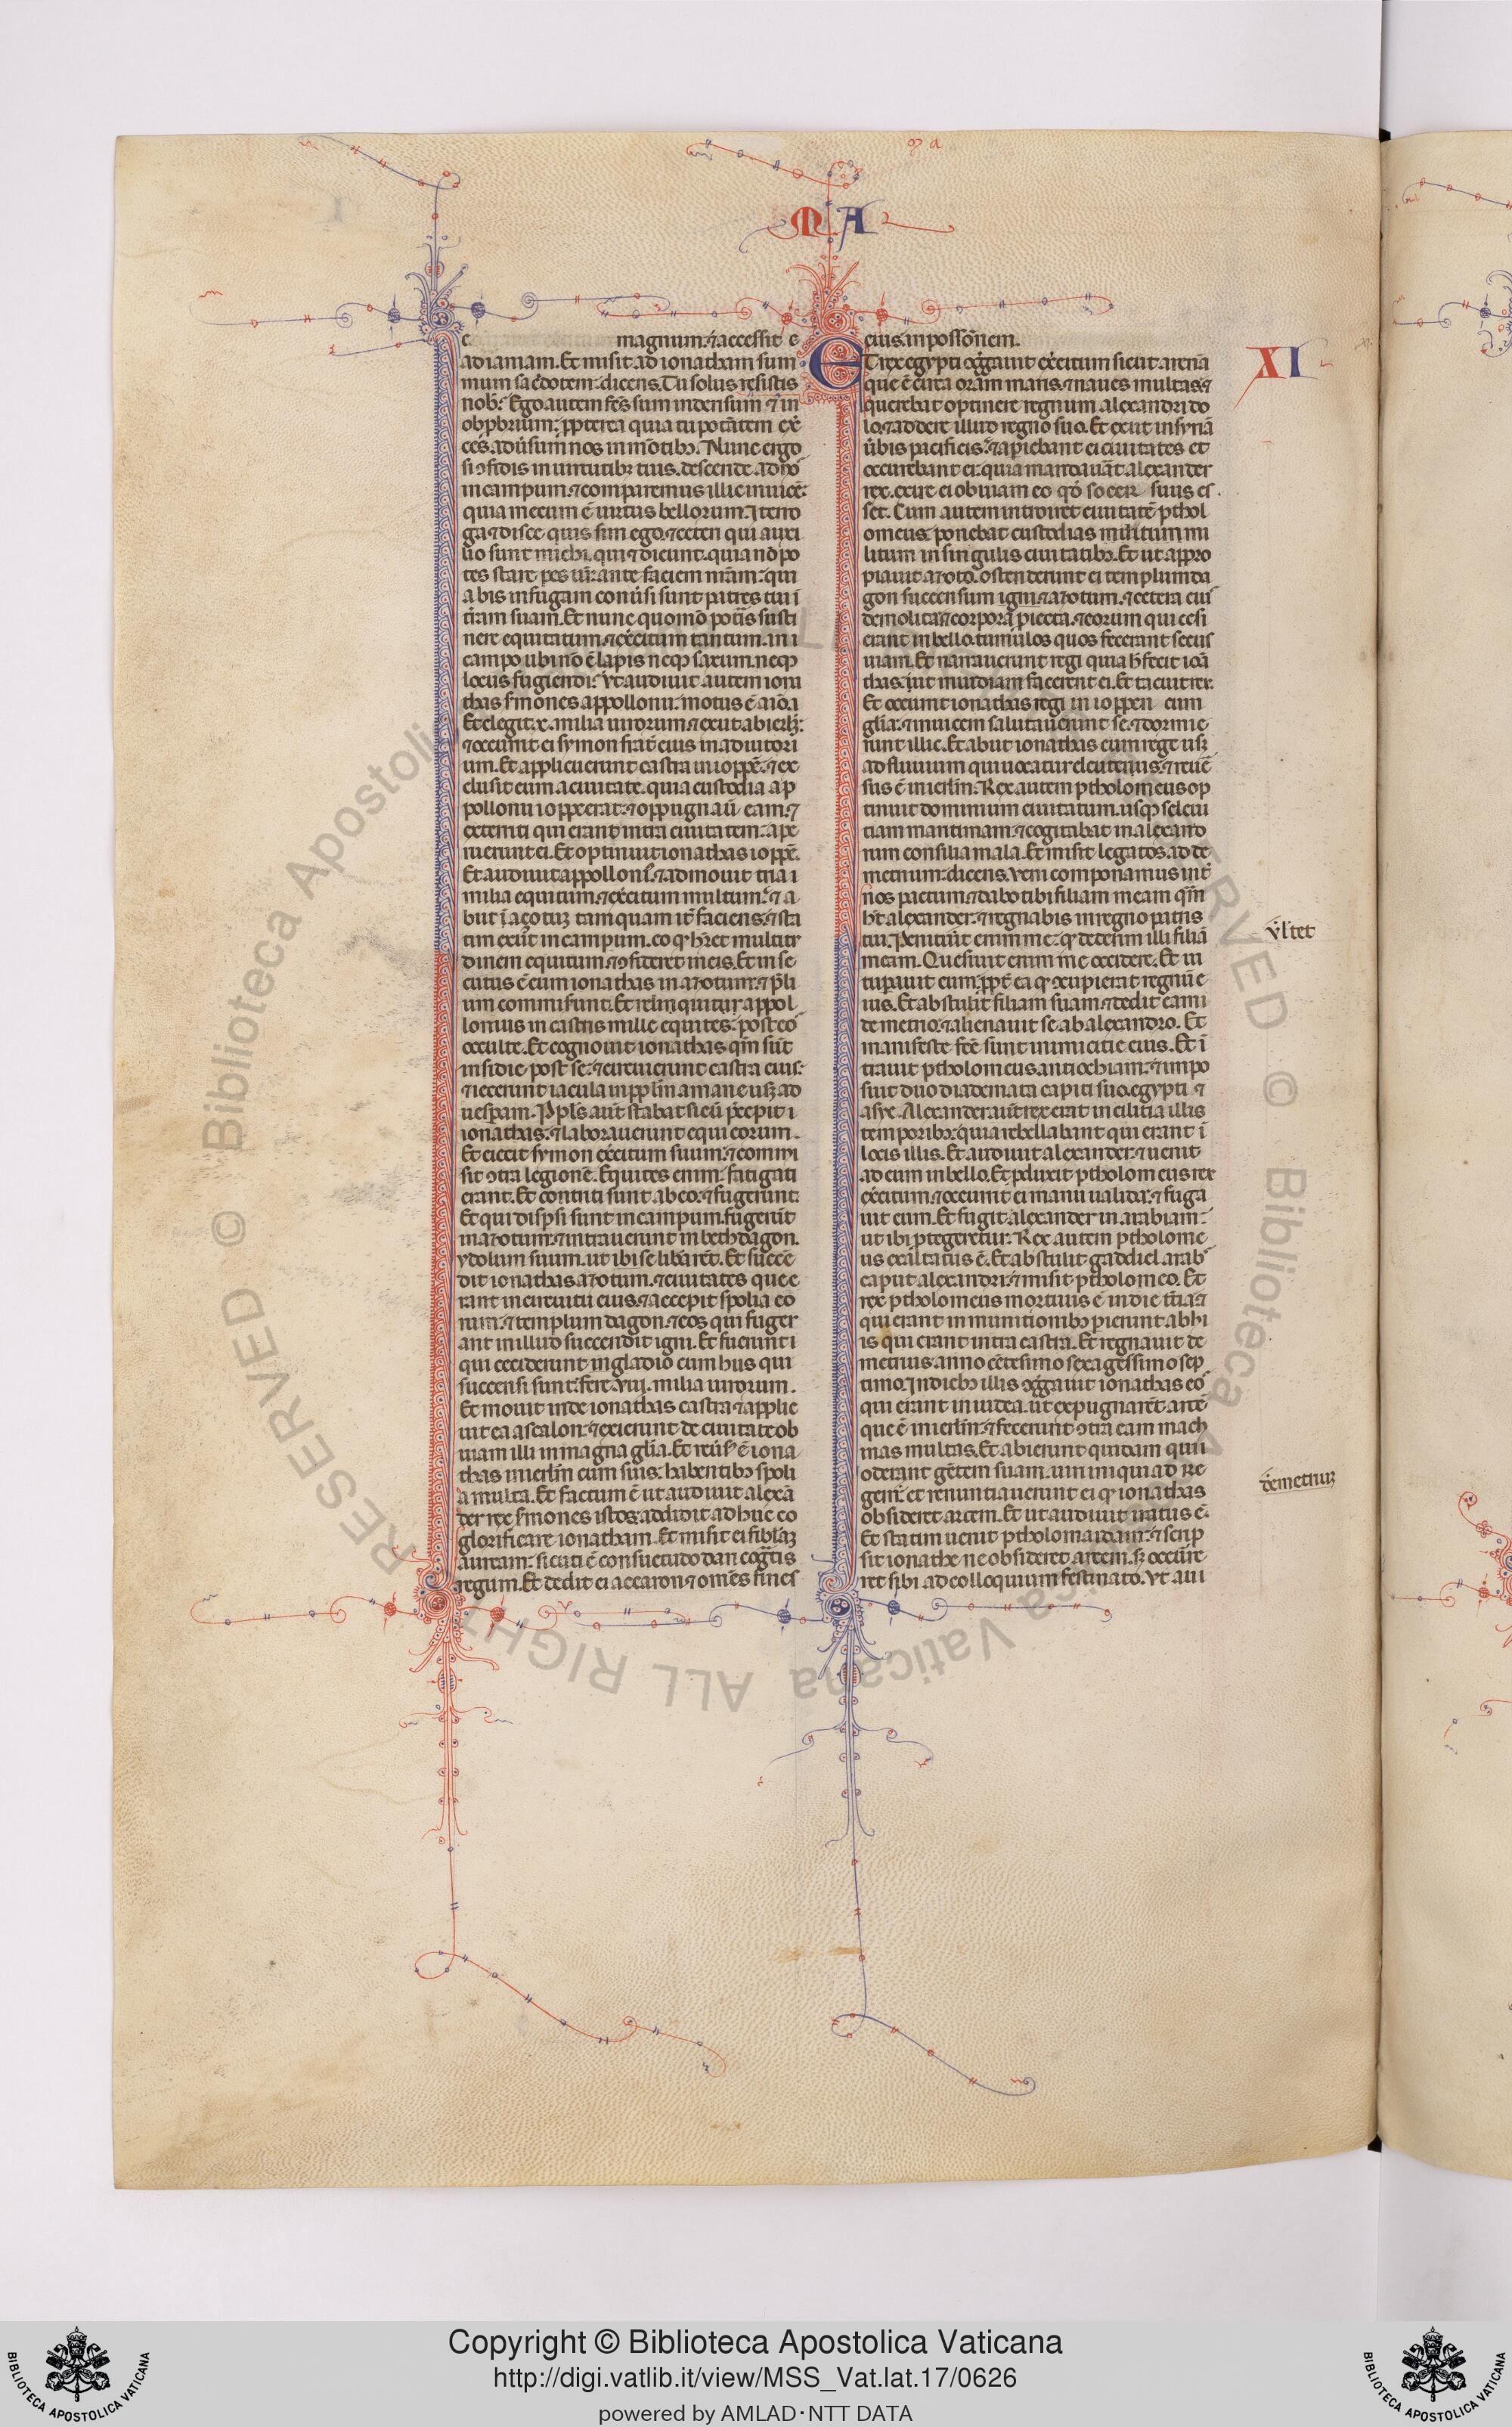 MA
magnum. ⁊ accessit
ad iamam. Et misit ad ionatham sum
mum sac̄dotem: dicens. Tu solus resistis
nob̄. Ego autem
Nunc ergo
in campum. ⁊ comparemus illic inuicē:
quia mecum ē uirtus bellorum. Interro
ga ⁊ disce quis sim ego. ⁊ ceteri qui auxi
lio sunt michi. qui ⁊ dicunt. quia nō po
tes stare pes ur̄ ante faciem nr̄am: qui
a bis in fugam conūsi sunt patres tui ī
t̄ram suam. Et nunc quomō pot̄is susti
nere equitatum. ⁊ ex̄citum tantum. in
campo ubi nō ē lapis neqꝫ saxum. neqꝫ
locus fugiendi. Vt audiuit autem iona
thas s̄mones appollonii: motus ē aīo.
Et elegit .x. milia uirorum. ⁊ exiit ab ierlm̄:
⁊ occurrit ei symon frat̄ eius in adiutori
um. Et applicuerunt castra in ioppē. ⁊ ex
clusit eum a ciuitate. quia custodia ap
pollonii ioppe erat. ⁊ oppugnauı̄ eam. ⁊
exterriti qui erant intra ciuitatem: ape
ruerunt ei. Et optinuit ionathas ioppē.
Et audiuit appolloni. ⁊ admouit tria
milia equitum. ⁊ ex̄citum multum. ⁊ a
biit ī açotuꝫ tamquam it̄ faciens. ⁊ sta
tim exiı̄t in campum. eo qꝫ h̄ret multitu
dinem equitum. ⁊ ꝯfideret in eis. Et inse
cutus ē eum ionathas in azotum. ⁊ p̄li
um commiserunt. Et relinquitur appol
lonius in castris mille equites: post eo
occulte. Et cognouit ionathas qm̄ sunt
insidie post se. ⁊ circuierunt castra eius:
⁊ iecerunt iacula in pplm̄ a mane usqꝫ ad
uesp̄am. Ppls̄ aut̄ stabat sicut p̄cepit
ionathas. ⁊ laborauerunt equi eorum.
Et eiecit symon ex̄citum suum. ⁊ commi
sit ꝯtra legionē. Equites enim fatigati
erant. Et contriti sunt ab eo. ⁊ fugerunt.
Et qui disp̄si sunt in campum. fugerūt
in azotum. ⁊ intrauerunt in beth dagon.
ydolum suum. ut ibi se libarēt. Et succē
dit ionathas azotum. ⁊ ciuitates que e
rant in circuitu eius. ⁊ accepit spolia eo
rum. ⁊ templum dagon. ⁊ eos qui fuger
ant in illud succendit igni. Et fuerunt
qui ceciderunt in gladio cum hiis qui
succensi sunt: fere .viij. milia uirorum.
Et mouit inde ionathas castra ⁊ applic
uit ea ascalon. ⁊ exierunt de ciuitate ob
uiam illi in magna glīa. Et reūsꝰ ē iona
thas in ierlm̄ cum suis: habentibꝫ spoli
a multa. Et factum ē ut audiuit alexā
der rex s̄mones istos. addidit adhuc
glorificare ionatham. Et misit ei fiblaꝫ
auream: sicuti ē consuetudo dari coḡtis
regum. Et dedit ei accaron ⁊ omēs fines
eius in possōnem.
ET rex egypti ꝯḡgauit ex̄citum sicut arenā
que ē circa oram maris. ⁊ naues multas. ⁊
querebat optinere regnum alexandri do
lo. ⁊ addere illud regno suo. Et exiit in syriā
ūbis pacificis. ⁊ apiebant ei ciuitates et
occurrebant ei: quia mandauāt alexander
rex. exire ei obuiam eo qđ socer suus es
set. Cum autem introiret ciuitatē pthol
omeus: ponebat custodias militum mi
litum in singulis ciuitatibꝫ. Et ut appro
piauit azoto. ostenderunt ei templum da
gon succensum igni. ⁊ azotum. ⁊ cetera eiꝰ
demolita. ⁊ corpora piecta. ⁊ eorum qui cesi
erant in bello. tumulos quos fecerant secus
uiam. Et narrauerunt regi quia h̄ fecit ionā
thas. ut inuidiam facerent ei. Et tacuit rex.
Et occurrit ionathas regi in ioppen cum
glīa. ⁊ inuicem salutauerunt se. ⁊ dormie
runt illic. Et abiit ionathas cum rege usqꝫ
ad fluuium qui uocatur eleuterius. ⁊ reuē
sus ē in ierlm̄. Rex autem ptholomeus op
tinuit dominium ciuitatum. usqꝫ seleu
tiam maritimam. ⁊ cogitabat in alexand
rum consilia mala. Et misit legatos. ad de
metrium: dicens. veni componamus int̄
nos pactum. ⁊ dabo tibi filiam meam qm̄
h̄t alexander. ⁊ regnabis in regno patris
tui. Penituit enim me. qꝫ dederim illi filiā
meam. Quesiuit enim me occidere. Et ui
tupauit eum. ppt̄ ea qꝫ ꝯcupierat regnū e
ius. Et abstulit filiam suam. ⁊ dedit eam
demetrio. ⁊ alienauit se ab alexandro. Et
manifeste fc̄e sunt inimicitie eius. Et ī
trauit ptholomeus antiochiam. ⁊ impo
suit duo diademata capiti suo. egypti ⁊
asye. Alexander aut̄ rex erat in cilitia illis
temporibꝫ: quia rebellabant qui erant ī
locis illis. Et audiuit alexander. ⁊ uenit
ad eum in bello. Et pduxit ptholomeus rex
ex̄citum. ⁊ occurrit ei manu ualida. ⁊ fuga
uit eum. Et fugit alexander in arabiam:
ut ibi ptegeretur. Rex autem ptholome
us exaltatus ē. Et abstulit gaddiel arabs
caput alexandri. ⁊ misit ptholomeo. Et
rex ptholomeus mortuus ē in die t̄cia. ⁊
qui erant in munitionibꝫ pierunt ab hi
is qui erant intra castra. Et regnauit de
metrius anno cētesimo sexagessimo sep
timo. In diebꝫ illis ꝯḡgauit ionathas eo
qui erant in iudea. ut expugnarēt arcē
que ē in ierlm̄. ⁊ fecerunt ꝯtra eam mach
inas multas. Et abierunt quidam qui
oderant gētem suam. uiri iniqui ad re
gem. et renuntiauerunt ei qꝫ ionathas
obsideret arcem. Et ut audiuit iratus ē.
Et statim uenit ptholomaidam. ⁊ scrip
sit ionathe ne obsideret arcem. sꝫ occurre
ret sibi ad colloquium festinato. Vt aui
XI
demetrius
Copyright © Biblioteca Apostolica Vaticana
http://digi.vatlib.it/view/MSS_Vat.lat.17/0626
powered by AMLAD·NTT DATA
BIBLIOTECA APOSTOLICA VATICANA
BIBLIOTECA APOSTOLICA VATICANA